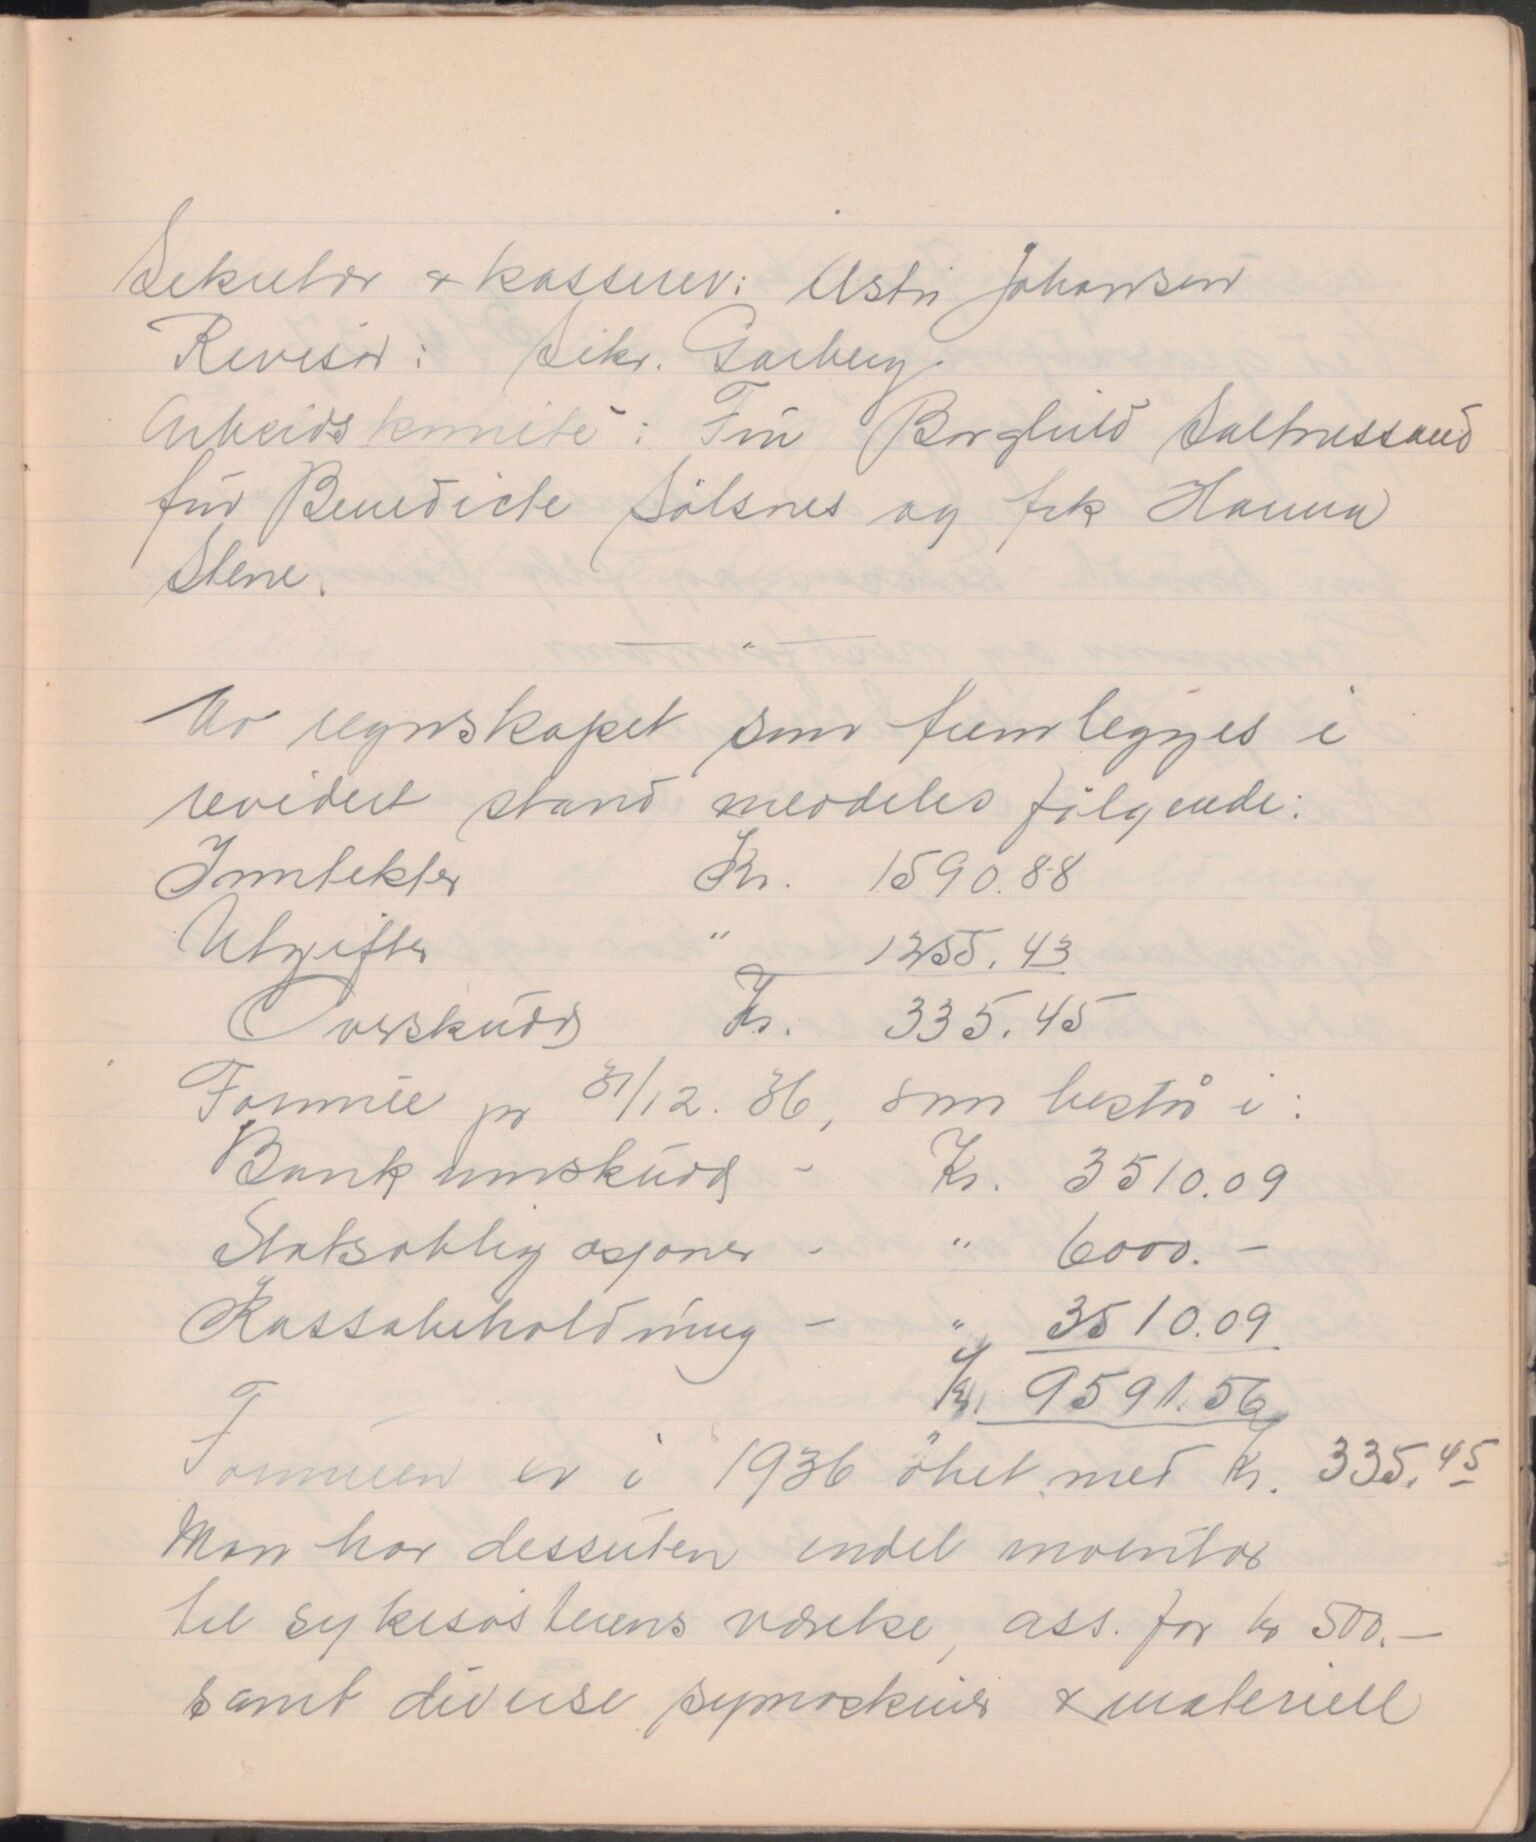 Sekretær & kasserer: Astri Johansen
Revisor: Sekr. Garberg.
Arbeidskomite: Fru Borghild Saltnessand
fru Benedicte Sölsnes og frk Hanna
Stene.
Av regnskapet som fremlegges i
revidert stand meddeles fölgende:
Inntekter Kr. 1590.88
Utgifter " 1255.43
Overskudd Kr. 335.45
Formue pr 31/12. 36, som består i:
Bankinnskudd - Kr. 3510.09
Statsobligasjoner - " 6000.-
Kassabeholdning - " 3510.09
Kr. 9591.56
Formuen er i 1936 öket med Kr. 335.45
Man har dessuten endel inventar
til sykesösterens værelse, ass. for kr 500.-
samt diverse symaskiner & materiell